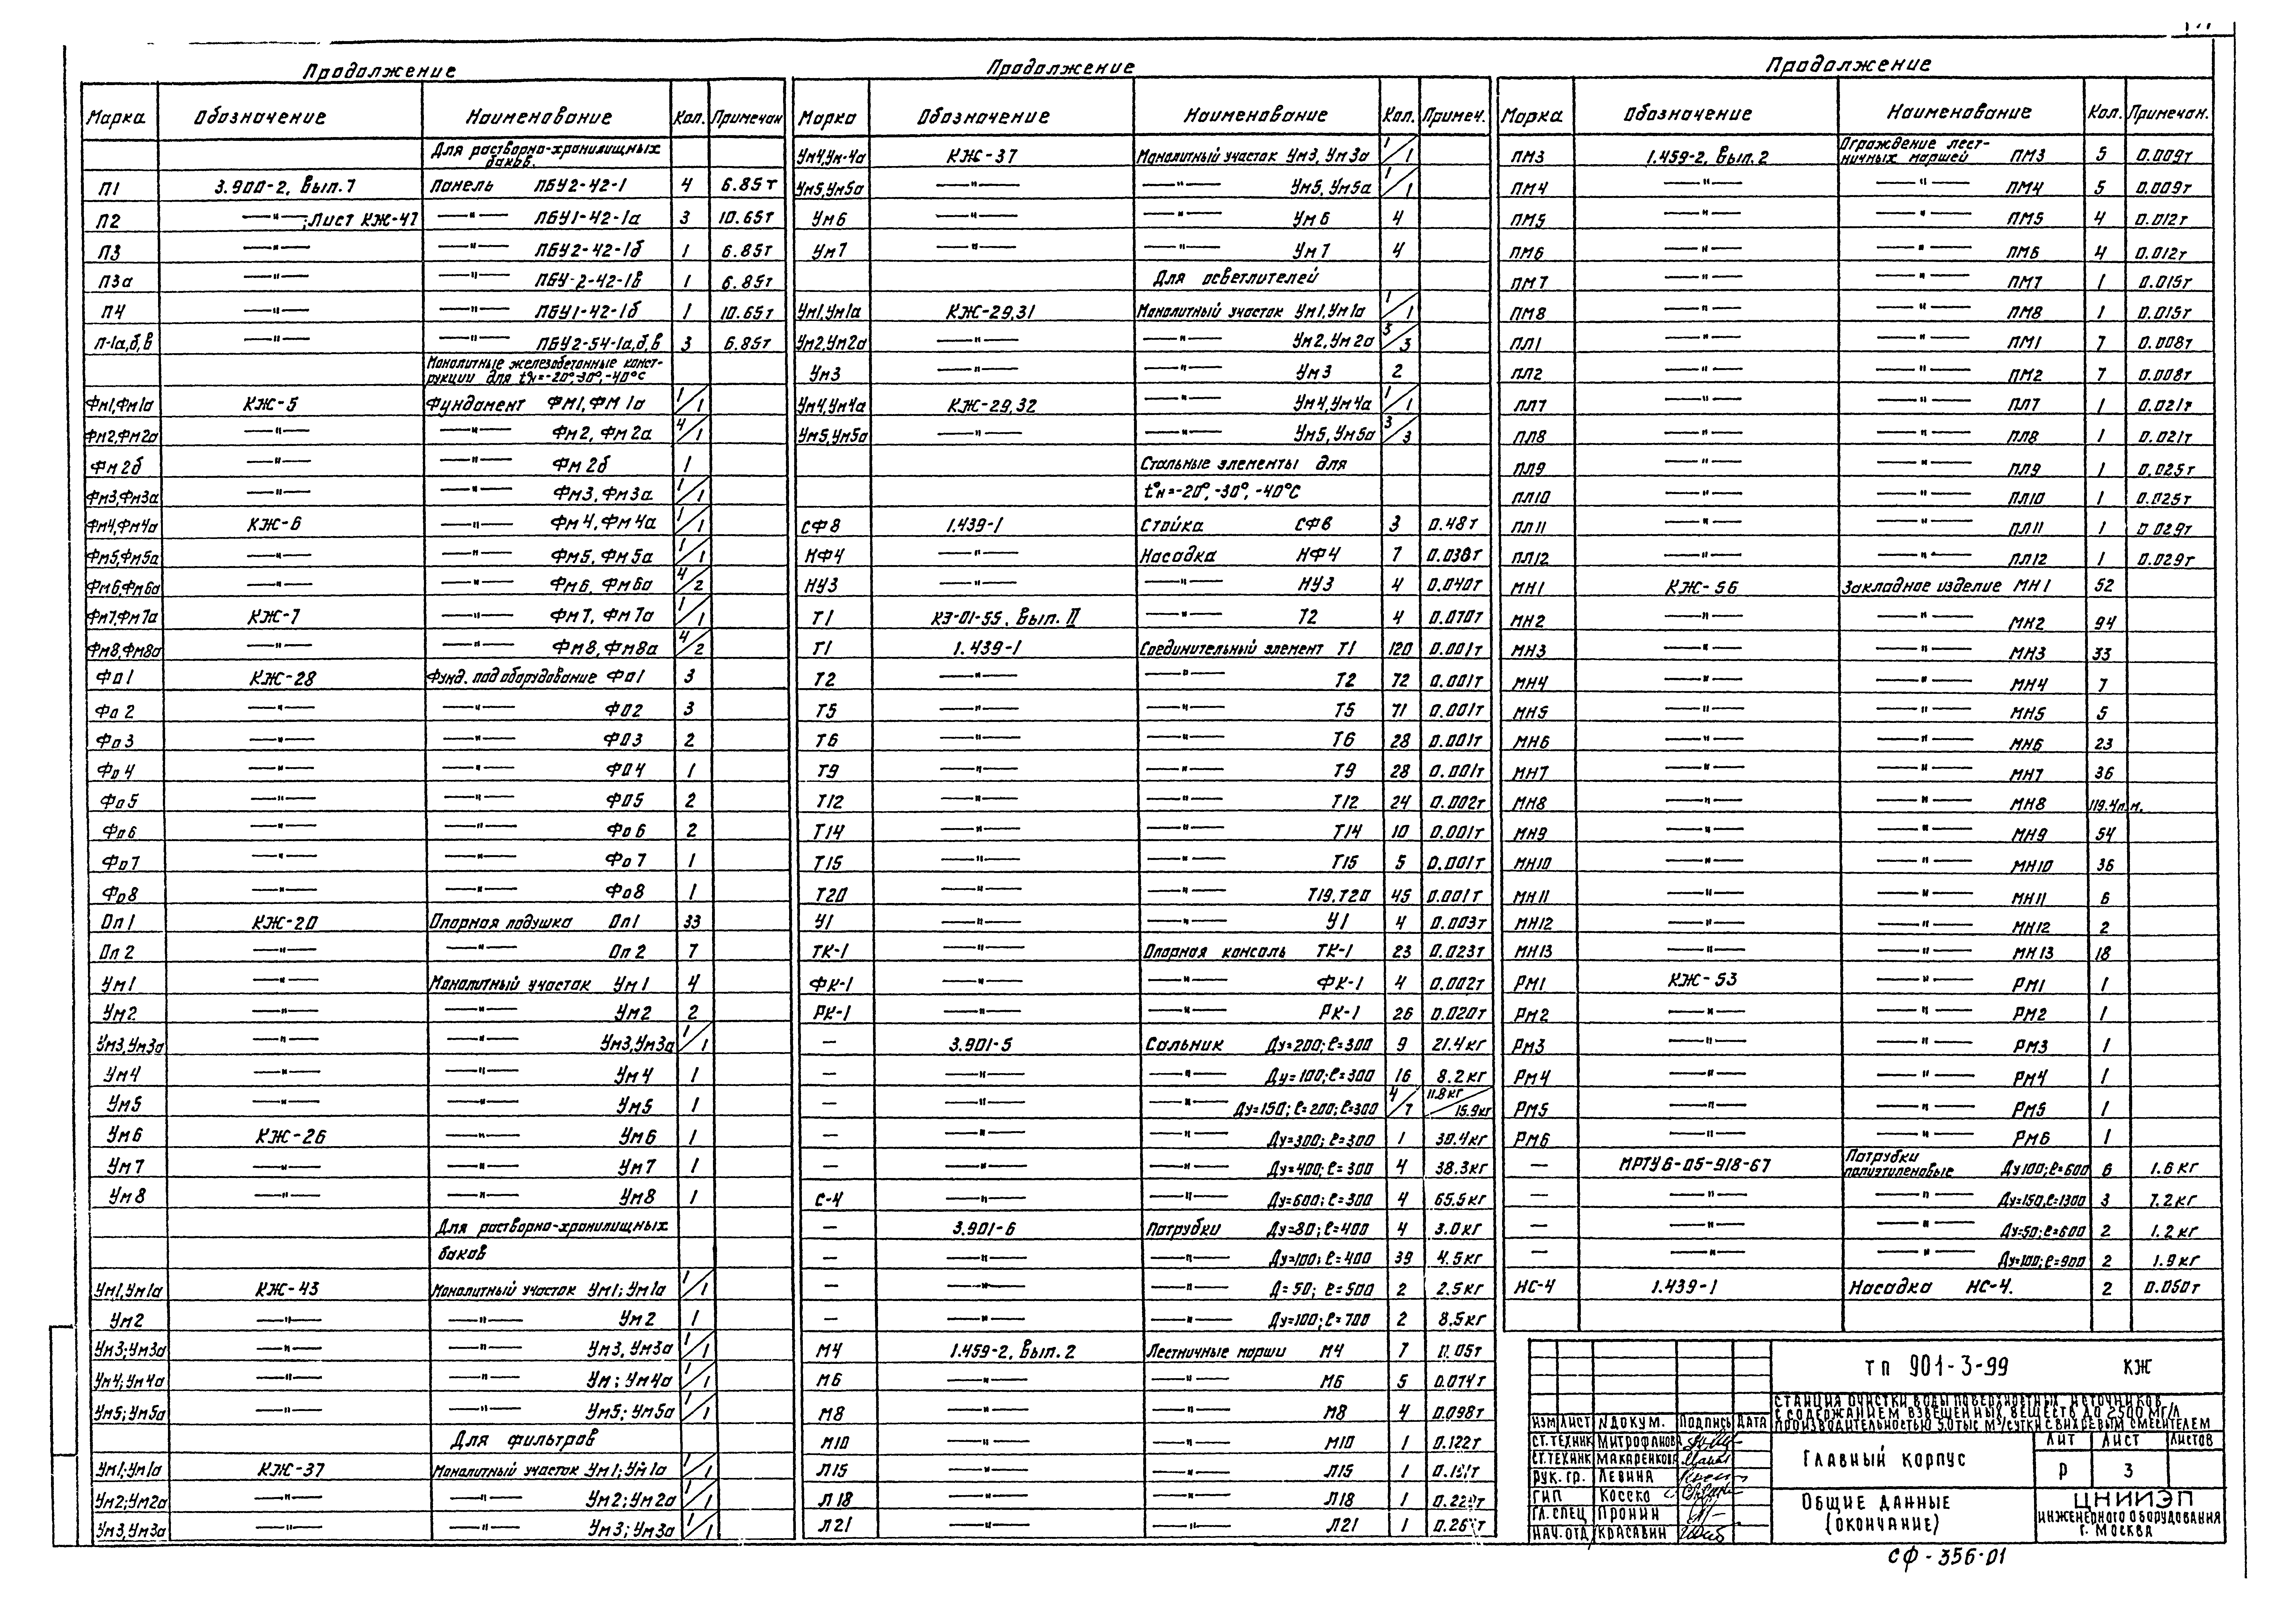 Продолжение
Марка Обозначение Наименование Кол. Примечан
Для растворно-хранилищных
баков.
П1 3.900-2, Вып.7 Панель ПБУ2-42-1 4 6.85т
П2 —"—; Лист КЖ-47 —"— ПБУ1-42-1а 3 10.65т
П3 —"— —"— ПБУ2-42-1б 1 6.85т
П3а —"— —"— ПБУ-2-42-1в 1 6.85т
П4 —"— —"— ПБУ1-42-1б 1 10.65т
П-1а,б,в —"— —"— ПБУ2-54-1а,б,в 3 6.85т
Монолитные железобетонные конст-
рукции для t°н=-20°,-30°,-40°С
Фм1,Фм1а КЖ-5 Фундамент ФМ1, ФМ1а 1/1
Фм2,Фм2а —"— —"— Фм2, Фм2а 4/1
Фм2б —"— —"— Фм2б 1
Фм3,Фм3а —"— —"— Фм3, Фм3а 1/1
Фм4,Фм4а КЖ-6 —"— Фм4, Фм4а 1/1
Фм5,Фм5а —"— —"— Фм5, Фм5а 1/1
Фм6,Фм6а —"— —"— Фм6, Фм6а 4/2
Фм7,Фм7а КЖ-7 —"— Фм7, Фм7а 1/1
Фм8,Фм8а —"— —"— Фм8, Фм8а 4/2
Фо1 КЖ-28 Фунд. под оборудование Фо1 3
Фо2 —"— —"— ФО2 3
Фо3 —"— —"— ФО3 2
Фо4 —"— —"— ФО4 1
Фо5 —"— —"— ФО5 2
Фо6 —"— —"— Фо6 2
Фо7 —"— —"— Фо7 1
Фо8 —"— —"— Фо8 1
Оп1 КЖ-20 Опорная подушка Оп1 33
Оп2 —"— —"— Оп2 7
Ум1 —"— Монолитный участок Ум1 4
Ум2 —"— —"— Ум2 2
Ум3,Ум3а —"— —"— Ум3,Ум3а 1/1
Ум4 —"— —"— Ум4 1
Ум5 —"— —"— Ум5 1
Ум6 КЖ-26 —"— Ум6 1
Ум7 —"— —"— Ум7 1
Ум8 —"— —"— Ум8 1
Для растворно-хранилищных
баков
Ум1,Ум1а КЖ-43 Монолитный участок Ум1; Ум1а 1/1
Ум2 —"— —"— Ум2 1
Ум3;Ум3а —"— —"— Ум3, Ум3а 1/1
Ум4; Ум4а —"— —"— Ум; Ум4а 1/1
Ум5; Ум5а —"— —"— Ум5; Ум5а 1/1
Для фильтров
Ум1; Ум1а КЖ-37 Монолитный участок Ум1; Ум1а 1/1
Ум2; Ум2а —"— —"— Ум2; Ум2а 1/1
Ум3, Ум3а —"— —"— Ум3; Ум3а 1/1
Продолжение
Марка Обозначение Наименование Кол. Примеч.
Ум4,Ум-4а КЖ-37 Монолитный участок Ум3, Ум3а 1/1
Ум5,Ум5а —"— —"— Ум5, Ум5а 1/1
Ум6 —"— —"— Ум6 4
Ум7 —"— —"— Ум7 4
Для осветлителей
Ум1,Ум1а КЖ-29,31 Монолитный участок Ум1,Ум1а 1/1
Ум2,Ум2а —"— —"— Ум2, Ум2а 3/3
Ум3 —"— —"— Ум3 2
Ум4,Ум4а КЖ-29,32 —"— Ум4,Ум4а 1/1
Ум5,Ум5а —"— —"— Ум5, Ум5а 3/3
Стальные элементы для
t°н=-20°, -30°, -40°С
СФ8 1.439-1 Стойка СФ8 3 0.48т
НФ4 —"— Насадка НФ4 7 0.038т
НУ3 —"— —"— НУ3 4 0.040т
Т1 КЭ-01-55, Вып. II —"— Т2 4 0.070т
Т1 1.439-1 Соединительный элемент Т1 120 0.001т
Т2 —"— —"— Т2 72 0.001т
Т5 —"— —"— Т5 71 0.001т
Т6 —"— —"— Т6 28 0.001т
Т9 —"— —"— Т9 28 0.001т
Т12 —"— —"— Т12 24 0.002т
Т14 —"— —"— Т14 10 0.001т
Т15 —"— —"— Т15 5 0.001т
Т20 —"— —"— Т19, Т20 45 0.001т
У1 —"— —"— У1 4 0.003т
ТК-1 —"— Опорная консоль ТК-1 23 0.023т
ФК-1 —"— —"— ФК-1 4 0.002т
РК-1 —"— —"— РК-1 26 0.020т
— 3.901-5 Сальник Ду=200; ℓ=300 9 21.4кг
— —"— —"— Ду=100; ℓ=300 16 8.2кг
— —"— —"— Ду=150; ℓ=200; ℓ=300 4/7 11.8кг/15.9кг
— —"— —"— Ду=300; ℓ=300 1 30.4кг
— —"— —"— Ду=400; ℓ=300 4 38.3кг
С-4 —"— —"— Ду=600; ℓ=300 4 65.5кг
— 3.901-6 Патрубки Ду=80; ℓ=400 4 3.0кг
— —"— —"— Ду=100; ℓ=400 39 4.5кг
— —"— —"— Д=50; ℓ=500 2 2.5кг
— —"— —"— Ду=100; ℓ=700 2 8.5кг
М4 1.459-2, Вып.2 Лестничные марши М4 7 0.05т
М6 —"— —"— М6 5 0.074т
М8 —"— —"— М8 4 0.098т
М10 —"— —"— М10 1 0.122т
Л15 —"— —"— Л15 1
Л18 —"— —"— Л18 1
Л21 —"— —"— Л21 1
Продолжение
Марка Обозначение Наименование Кол. Примечан.
ПМ3 1.459-2, Вып.2 Ограждение лест-
ничных маршей ПМ3 5 0.009т
ПМ4 —"— —"— ПМ4 5 0.009т
ПМ5 —"— —"— ПМ5 4 0.012т
ПМ6 —"— —"— ПМ6 4 0.012т
ПМ7 —"— —"— ПМ7 1 0.015т
ПМ8 —"— —"— ПМ8 1 0.015т
ПЛ1 —"— —"— ПМ1 7 0.008т
ПЛ2 —"— —"— ПМ2 7 0.008т
ПЛ7 —"— —"— ПЛ7 1 0.021т
ПЛ8 —"— —"— ПЛ8 1 0.021т
ПЛ9 —"— —"— ПЛ9 1 0.025т
ПЛ10 —"— —"— ПЛ10 1 0.025т
ПЛ11 —"— —"— ПЛ11 1 0.029т
ПЛ12 —"— —"— ПЛ12 1 0.029т
МН1 КЖ-56 Закладное изделие МН1 52
МН2 —"— —"— МН2 94
МН3 —"— —"— МН3 33
МН4 —"— —"— МН4 7
МН5 —"— —"— МН5 5
МН6 —"— —"— МН6 23
МН7 —"— —"— МН7 36
МН8 —"— —"— МН8 119.4п.м.
МН9 —"— —"— МН9 54
МН10 —"— —"— МН10 36
МН11 —"— —"— МН11 6
МН12 —"— —"— МН12 2
МН13 —"— —"— МН13 18
РМ1 КЖ-53 —"— РМ1 1
РМ2 —"— —"— РМ2 1
РМ3 —"— —"— РМ3 1
РМ4 —"— —"— РМ4 1
РМ5 —"— —"— РМ5 1
РМ6 —"— —"— РМ6 1
— МРТУ6-05-918-67 Патрубки
полиэтиленовые Ду100; ℓ=600 6 1.6кг
— —"— —"— Ду=150, ℓ=1300 3 7.2кг
— —"— —"— Ду=50; ℓ=600 2 1.2кг
— —"— —"— Ду=100; ℓ=900 2 1.9кг
НС-4 1.439-1 Насадка НС-4. 2 0.050т
ТП 901-3-99 КЖ
СТАНЦИЯ ОЧИСТКИ ВОДЫ ПОВЕРХНОСТНЫХ ИСТОЧНИКОВ
С СОДЕРЖАНИЕМ ВЗВЕШЕННЫХ ВЕЩЕСТВ ДО 2500 МГ/Л
ПРОИЗВОДИТЕЛЬНОСТЬЮ 5.0 ТЫС М³/СУТКИ С ВИХРЕВЫМ СМЕСИТЕЛЕМ
ИЗМ ЛИСТ N ДОКУМ. ПОДПИСЬ ДАТА
СТ.ТЕХНИК МИТРОФАНОВА
СТ.ТЕХНИК МАКАРЕНКОВА
РУК. ГР. ЛЕВИНА
ГИП КОССКО
ГЛ.СПЕЦ ПРОНИН
НАЧ.ОТД КРАСАВИН
ГЛАВНЫЙ КОРПУС
ЛИТ ЛИСТ ЛИСТОВ
Р 3
ОБЩИЕ ДАННЫЕ
(ОКОНЧАНИЕ)
ЦНИИЭП
ИНЖЕНЕРНОГО ОБОРУДОВАНИЯ
Г. МОСКВА
СФ-356-01